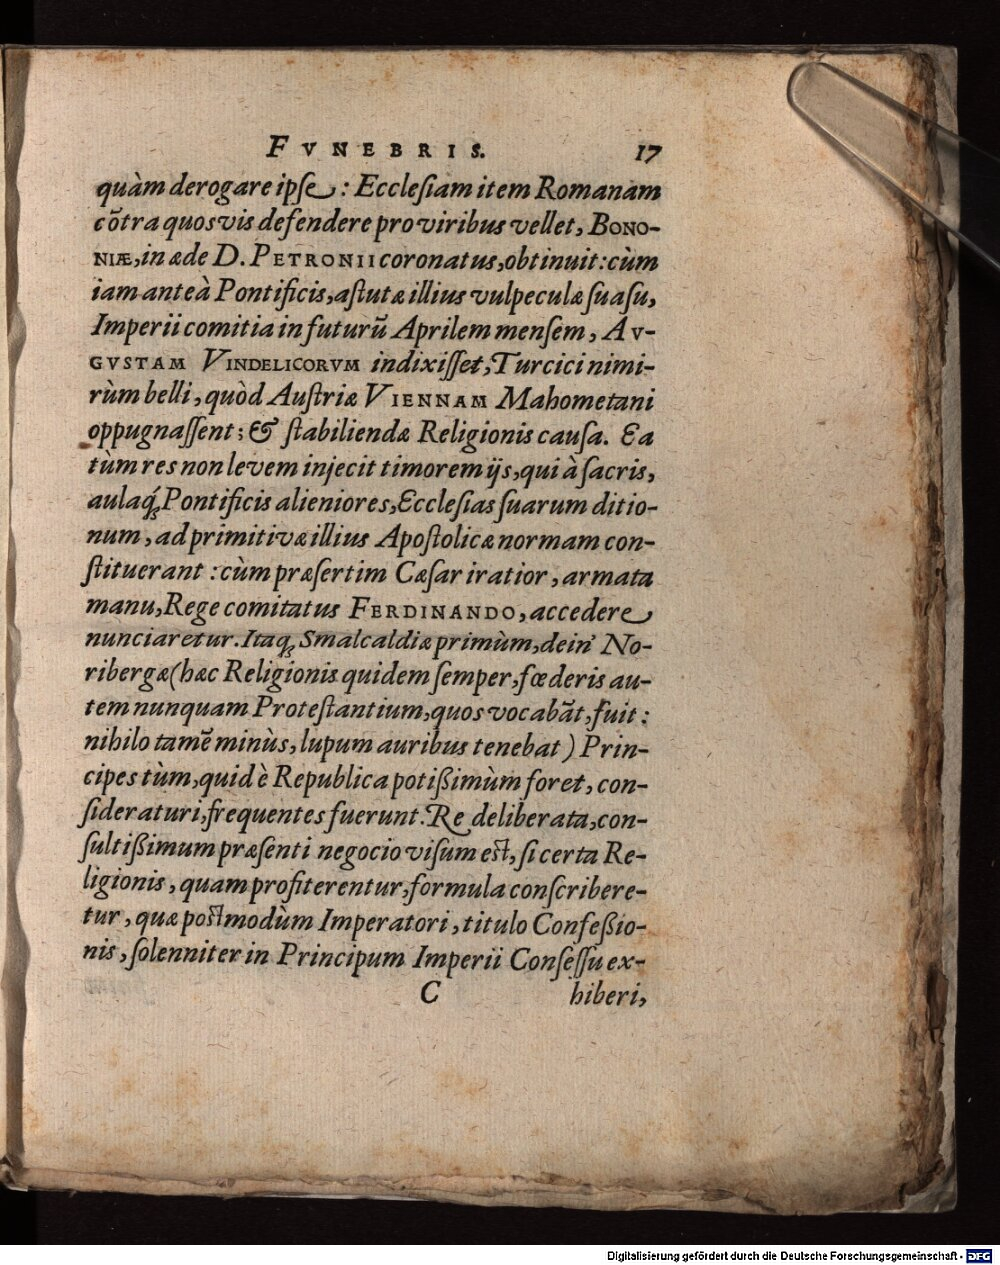 FVNEBRIS. 17
quàm derogare ipſe : Eccleſiam item Romanam
cõtra quosvis defendere pro viribus vellet, BONO-
NIÆ, in æde D. PETRONII coronatus, obtinuit: cùm
iam anteà Pontificis, aſtutæ illius vulpeculæ ſuaſu,
Imperii comitia in futurũ Aprilem menſem, AV-
GVSTAM VINDELICORVM indixiſſet, Turcici nimi-
rùm belli, quòd Auſtriæ VIENNAM Mahometani
oppugnaſſent; & ſtabiliendæ Religionis cauſa. Ea
tùm res non levem injecit timorem ijs, qui à ſacris,
aulaq́ꝫ Pontificis alieniores, Eccleſias ſuarum ditio-
num, ad primitivæ illius Apoſtolicæ normam con-
ſtituerant : cùm præſertim Cæſar iratior, armata
manu, Rege comitatus FERDINANDO, accedere
nunciaretur. Itaqꝫ Smalcaldiæ primùm, dein' No-
ribergæ (hæc Religionis quidem ſemper, fœderis au-
tem nunquam Proteſtantium, quos vocabãt, fuit :
nihilo tamẽ minùs, lupum auribus tenebat) Prin-
cipes tùm, quid è Republica potißimùm foret, con-
ſideraturi, frequentes fuerunt. Re deliberata, con-
ſultißimum præſenti negocio viſum eſt, ſi certa Re-
ligionis, quam profiterentur, formula conſcribere-
tur, quæ poſtmodùm Imperatori, titulo Confeßio-
nis, ſolenniter in Principum Imperii Conſeſſu ex-
C hiberi,
Digitalisierung gefördert durch die Deutsche Forschungsgemeinschaft - DFG